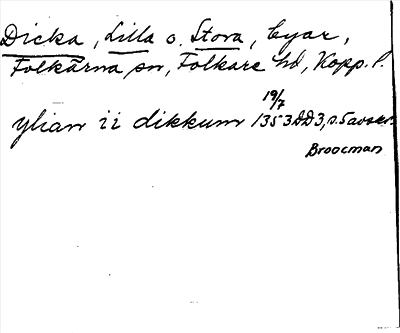 Dicka, Lilla o. Stora, byar,
Folkärna sn, Folkare hd, Kopp. l.
19/7
ylian ii dikkum 1353 DD3, s.5 avskr.
Broocman